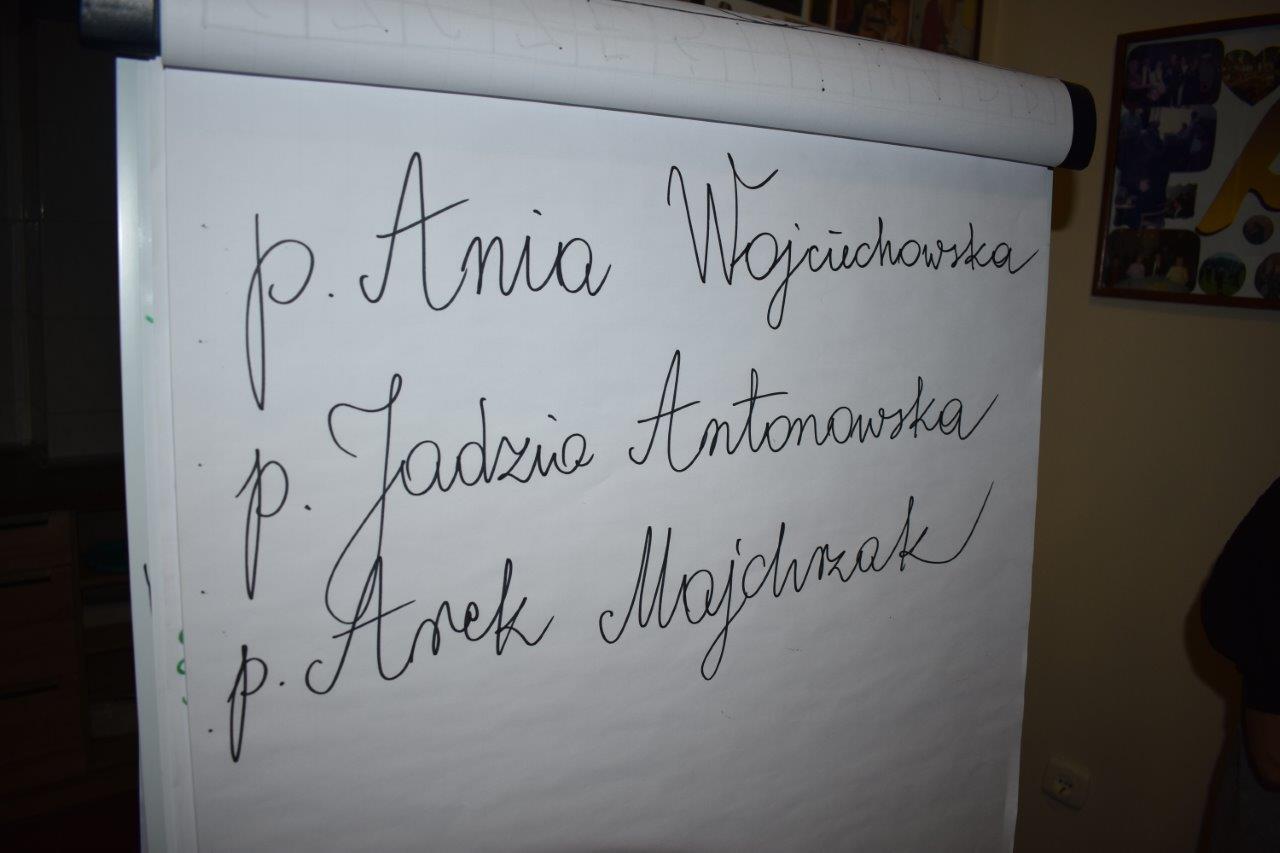 p. Ania Wojciechowska
p. Jadzia Antonowska
p. Arek Majchrzak